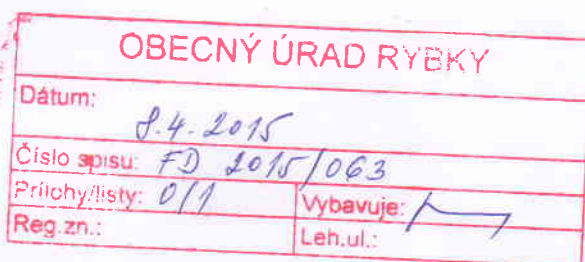 OBECNÝ ÚRAD RYBKY
Dátum:
8.4.2015
Číslo spisu: FD 2015/063
Prílohy/listy: 0/1 Vybavuje:
Reg.zn.: Leh.ul.: